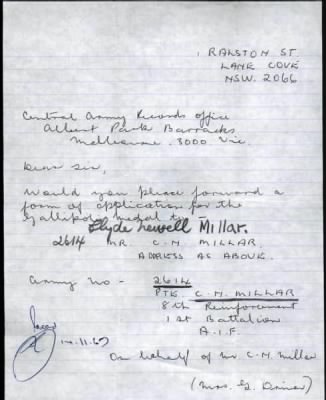 1 RALSTON ST.
LANE COVE
NSW. 2066
Central Army Records Office
Albert Park Barracks
Melbourne. 3000 Vic.
Dear Sir,
Would you please forward a
form of application for the
Gallipoli medal to
Clyde Newell Millar.
2614 MR. C. N. MILLAR
ADDRESS AS ABOVE.
Army No - 2614
PTE C. N. MILLAR
8th Reinforcement
1st Battalion
A.I.F.
14.11.67
On behalf of Mr C. N. Millar
(Mrs. G.